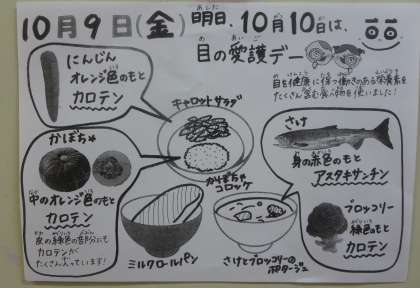 10月9日(金) 明日、10月10日は、
目の愛護デー
目を健康に保つ働きのある栄養素を
たくさん含む食べ物を使いました!
にんじん
オレンジ色のもと
カロテン
キャロットサラダ
かぼちゃ
中のオレンジ色のもと
カロテン
皮の緑色の部分にも
カロテンが
たくさん入っています!
かぼちゃ
コロッケ
ミルクロールパン
さけとブロッコリーの
ポタージュ
さけ
身の赤色のもと
アスタキサンチン
ブロッコリー
緑色のもと
カロテン